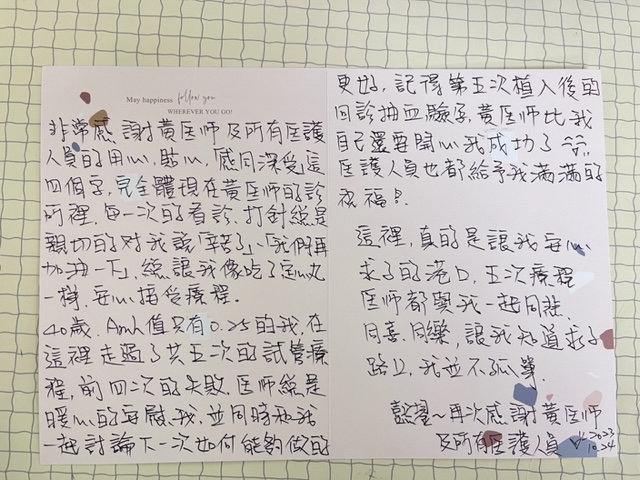 May happiness follow you
WHEREVER YOU GO!
非常感謝黃医師及所有医護
人員的用心,貼心,感同深受這
四個字,完全體現在黃医師的診
所裡,每一次的看診、打針總是
親切的對我說「辛苦了」、「我們再
加油一下」,總讓我像吃了定心丸
一樣,安心接受療程。
40歲,Amh值只有0.25的我,在
這裡走過了共五次的試管療
程,前四次的失敗,医師總是
暖心的安慰我,並同時和我
一起討論下一次如何能夠做的
更好,記得第五次植入後的
回診抽血驗孕,黃医師比我
自己還要開心我成功了
医護人員也都給予我滿滿的
祝福!
這裡,真的是讓我安心
求子的港口,五次療程
医師都與我一起同悲
同喜、同樂,讓我知道求子
路上,我並不孤單
懿~再次感謝黃医師
及所有医護人員
2023
10.24